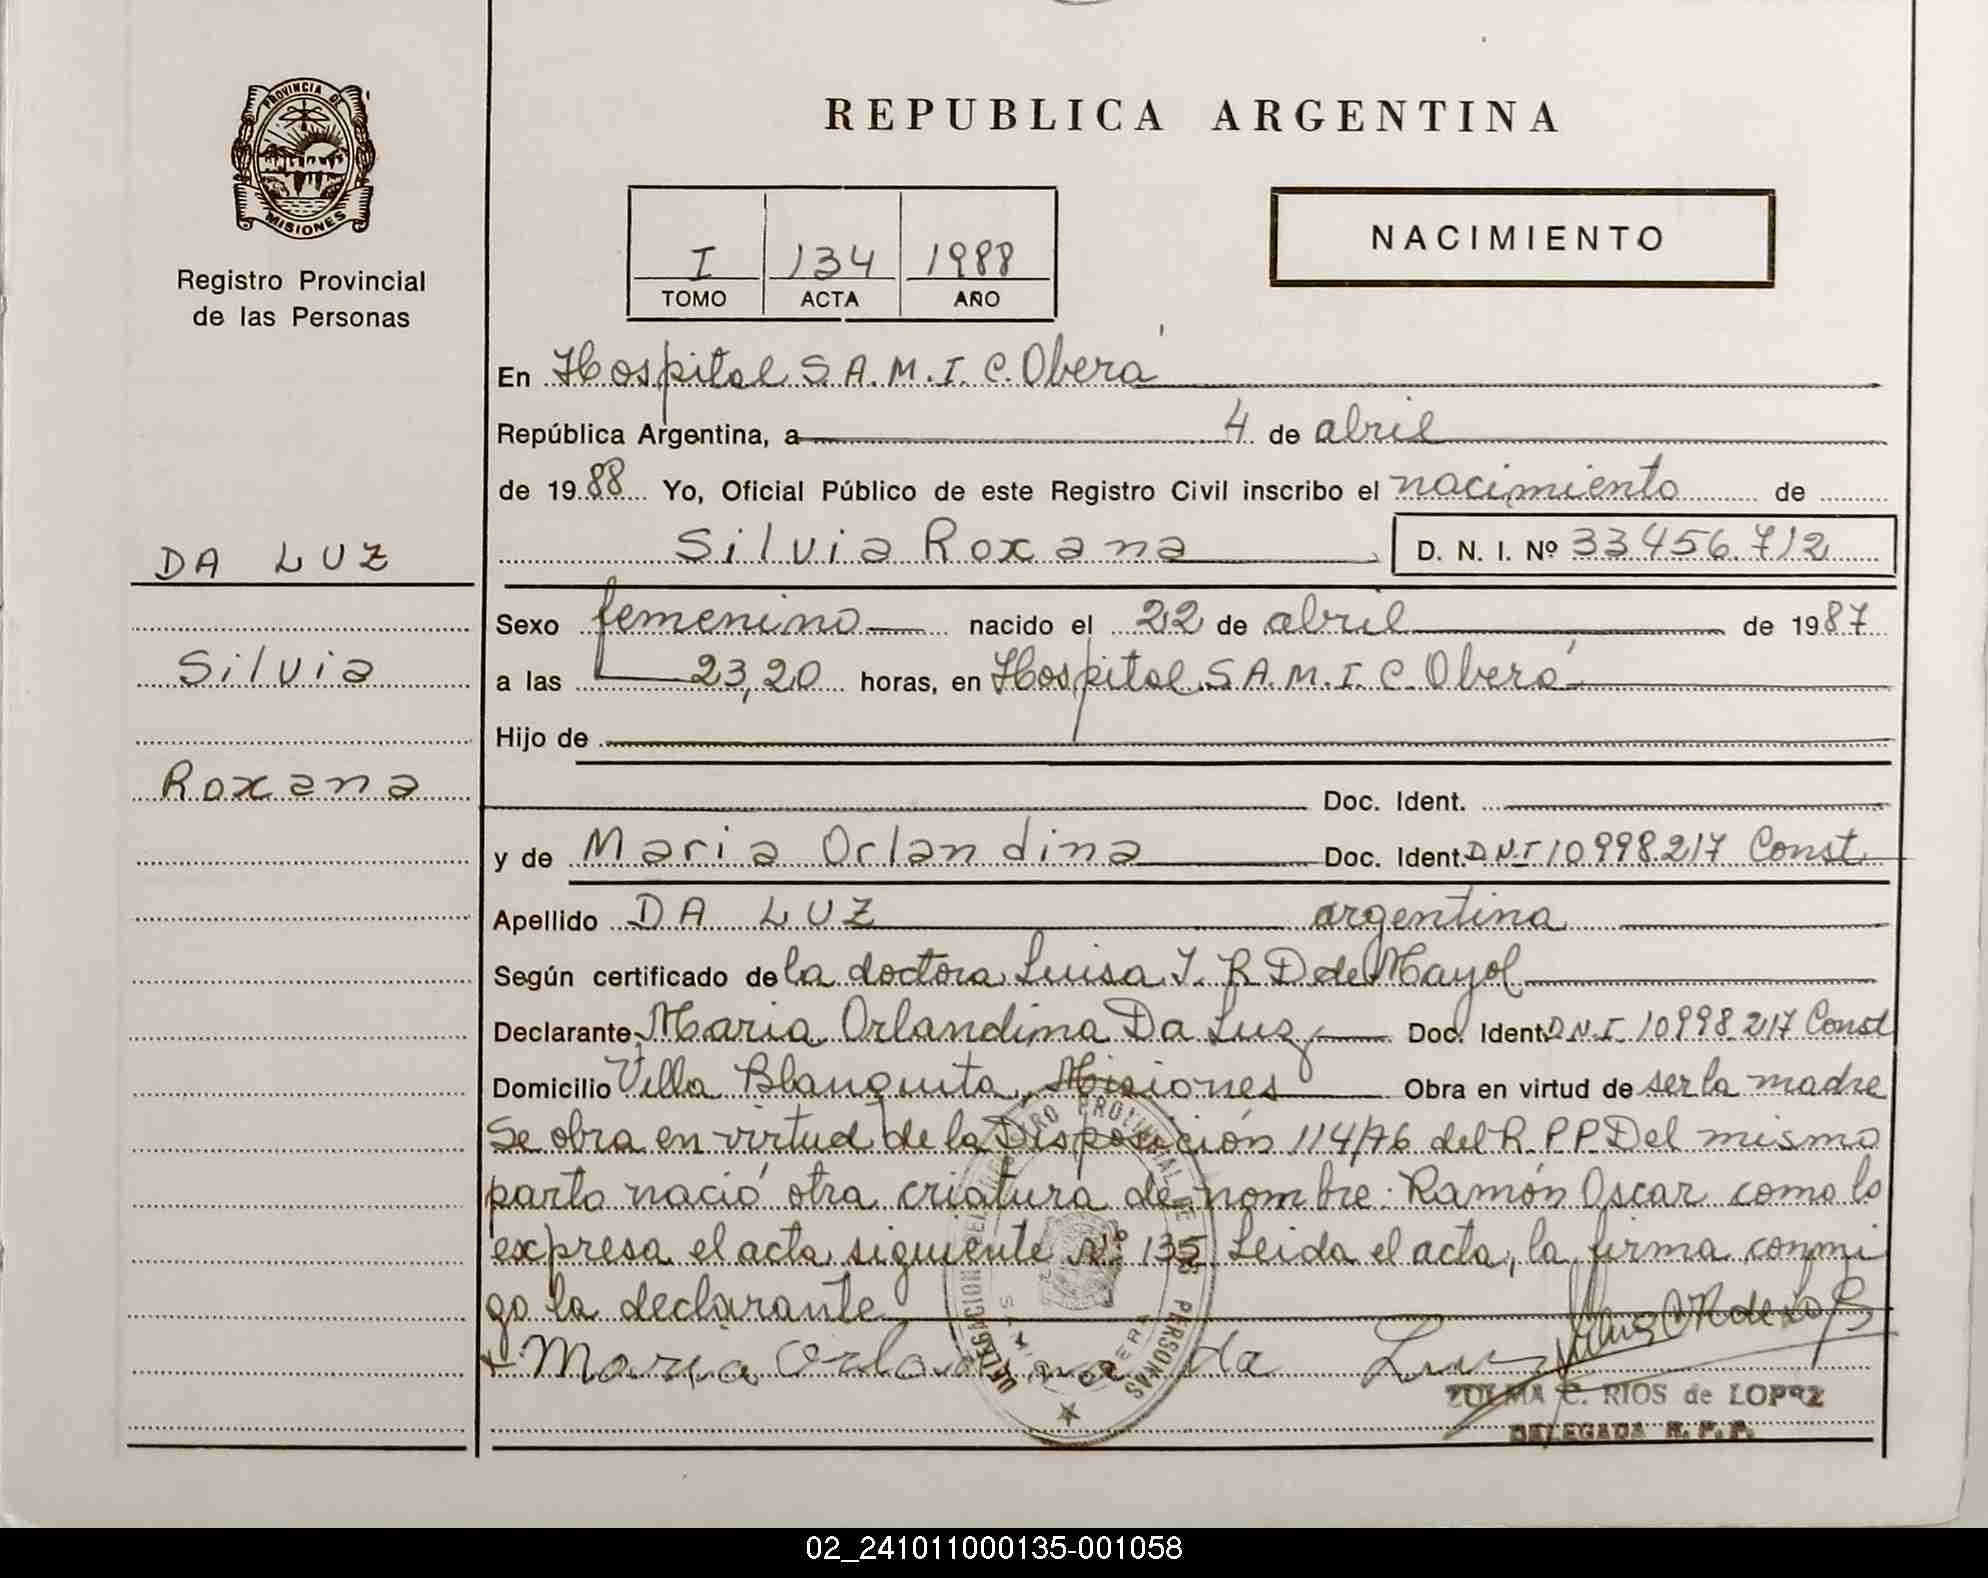 PROVINCIA DE
MISIONES
Registro Provincial
de las Personas
REPUBLICA ARGENTINA
I 134 1988
TOMO ACTA AÑO
NACIMIENTO
En Hospital S.A.M.I.C. Oberá
República Argentina, a 4 de abril
de 1988 Yo, Oficial Público de este Registro Civil inscribo el nacimiento de
Silvia Roxana D. N. I. Nº 33456.712
DA LUZ
Silvia
Roxana
Sexo femenino nacido el 22 de abril de 1987
a las 23,20 horas, en Hospital S.A.M.I.C. Oberá
Hijo de
Doc. Ident.
y de Maria Orlandina Doc. Ident. D.N.I 10.998.217 Const
Apellido DA LUZ argentina
Según certificado de la doctora Luisa I. R D de Mayol
Declarante Maria Orlandina Da Luz Doc. Ident. D.N.I. 10998.217 Const
Domicilio Villa Blanquita, Misiones Obra en virtud de ser la madre
Se obra en virtud de la Disposición 114/76 del R.P.P. Del mismo
parto nació otra criatura de nombre: Ramón Oscar como lo
expresa el acta siguiente Nº 135. Leida el acta, la firma conmi
go la declarante
Maria Orlandina da Luz
ZULMA C. RIOS de LOPEZ
DELEGADA R. P. P.
02_241011000135-001058